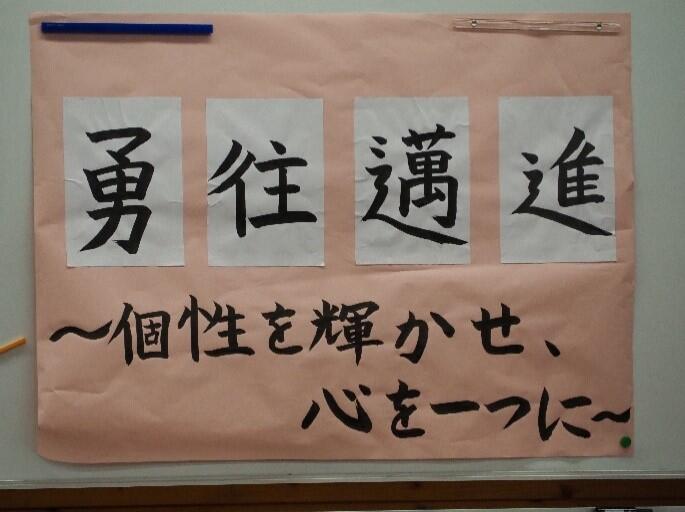 勇往邁進
〜個性を輝かせ、
心を一つに〜